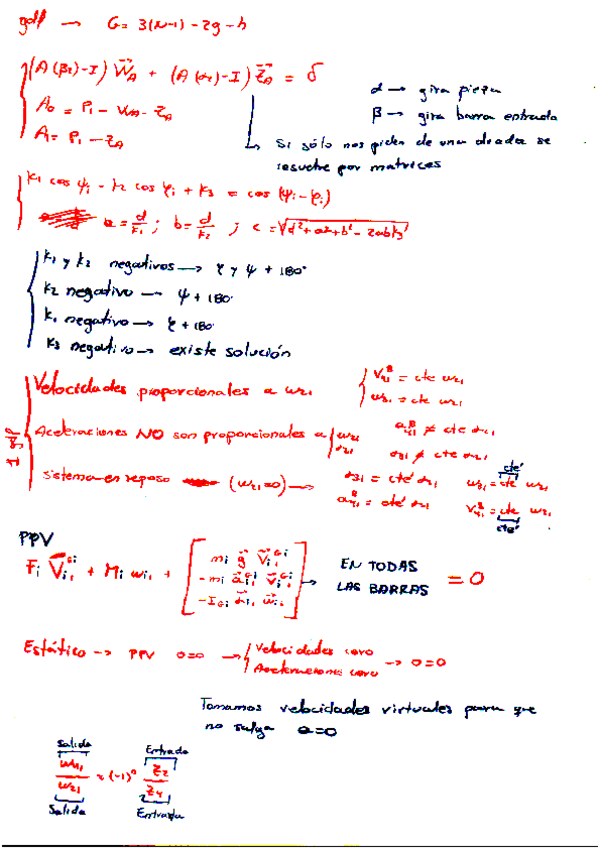 gdl → G = 3(N-1) - 2g - h
(A(β₁)-I) W⃗_A + (A(α₁)-I) Z⃗_A = δ
A₀ = P₁ - W_A - Z_A
A₁ = P₁ - Z_A
α → gira pieza
β → gira barra entrada
Si sólo nos piden de una diada se
resuelve por matrices
K₁ cos ψᵢ - K₂ cos φᵢ + K₃ = cos (ψᵢ - φᵢ)
a = d/K₁ ; b = d/K₂ ; c = √(d² + a² + b² - 2abK₃)
K₁ y K₂ negativos → φ y ψ + 180°
K₂ negativo → ψ + 180°
K₁ negativo → φ + 180°
K₃ negativo → existe solución
Velocidades proporcionales a ω₂₁
V₄₁ᴮ = cte ω₂₁
ω₃₁ = cte ω₂₁
Aceleraciones NO son proporcionales a ω₂₁
α₂₁
a₄₁ᴮ ≠ cte α₂₁
α₃₁ ≠ cte α₂₁
Sistema en reposo (ω₂₁=0) →
α₃₁ = cte' α₂₁
a₄₁ᴮ = cte' α₂₁
cte'
ω₃₁ = cte ω₂₁
V₄₁ᴮ = cte ω₂₁
PPV
Fᵢ V⃗ᵢ₁ᴳⁱ + Mᵢ ωᵢ₁ +
mᵢ g⃗ V⃗ᵢ₁ᴳⁱ
-mᵢ a⃗ᵢ₁ᴳⁱ V⃗ᵢ₁ᴳⁱ
-I_Gi α⃗ᵢ₁ ω⃗ᵢ₁
→ EN TODAS
LAS BARRAS = 0
Estático → PPV 0=0 → Velocidades cero
Aceleraciones cero → 0=0
Tomamos velocidades virtuales para que
no salga 0=0
Salida Entrada
ω₄₁/ω₂₁ = (-1)ⁿ Z₂/Z₄
Salida Entrada